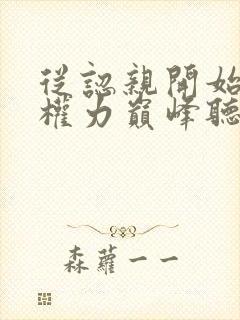 從認親開始
權力巔峰聽
森蘿一一